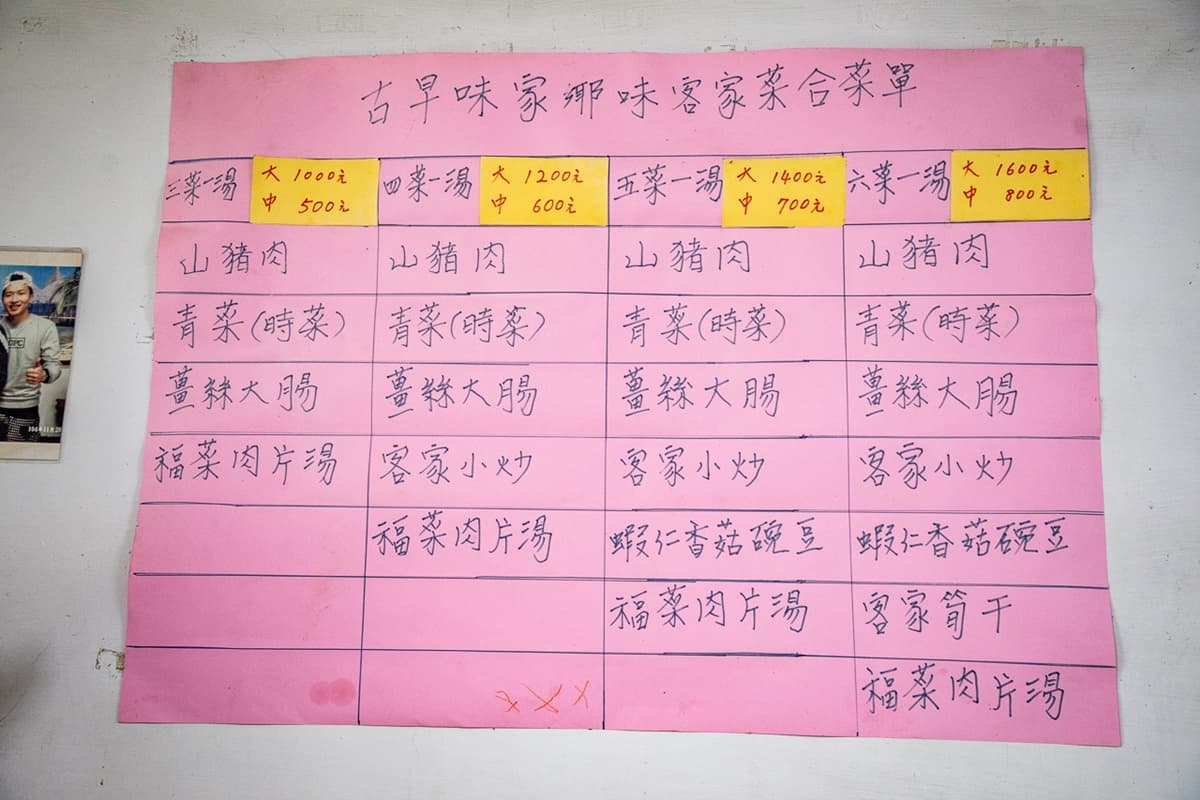 古早味家鄉味客家菜合菜單
三菜一湯 大 1000元 四菜一湯 大 1200元 五菜一湯 大 1400元 六菜一湯 大 1600元
中 500元 中 600元 中 700元 中 800元
山豬肉 山豬肉 山豬肉 山豬肉
青菜(時菜) 青菜(時菜) 青菜(時菜) 青菜(時菜)
薑絲大腸 薑絲大腸 薑絲大腸 薑絲大腸
福菜肉片湯 客家小炒 客家小炒 客家小炒
福菜肉片湯 蝦仁香菇碗豆 蝦仁香菇碗豆
福菜肉片湯 客家筍干
福菜肉片湯